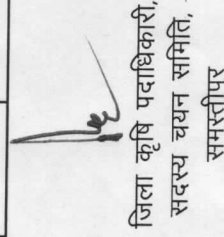 जिला कृषि पदाधिकारी,
सदस्य चयन समिति,
समस्तीपुर